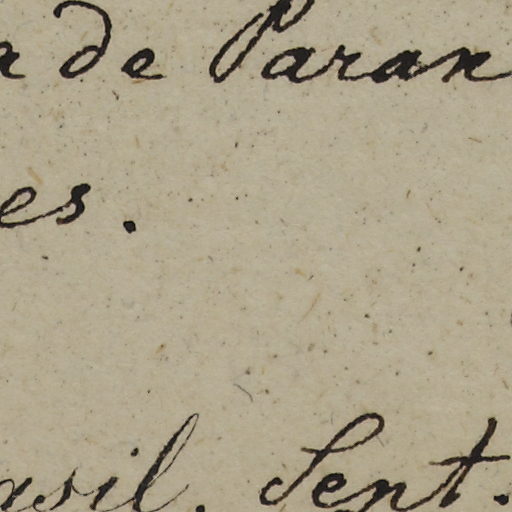 de Paran
es.
asil. Sent.